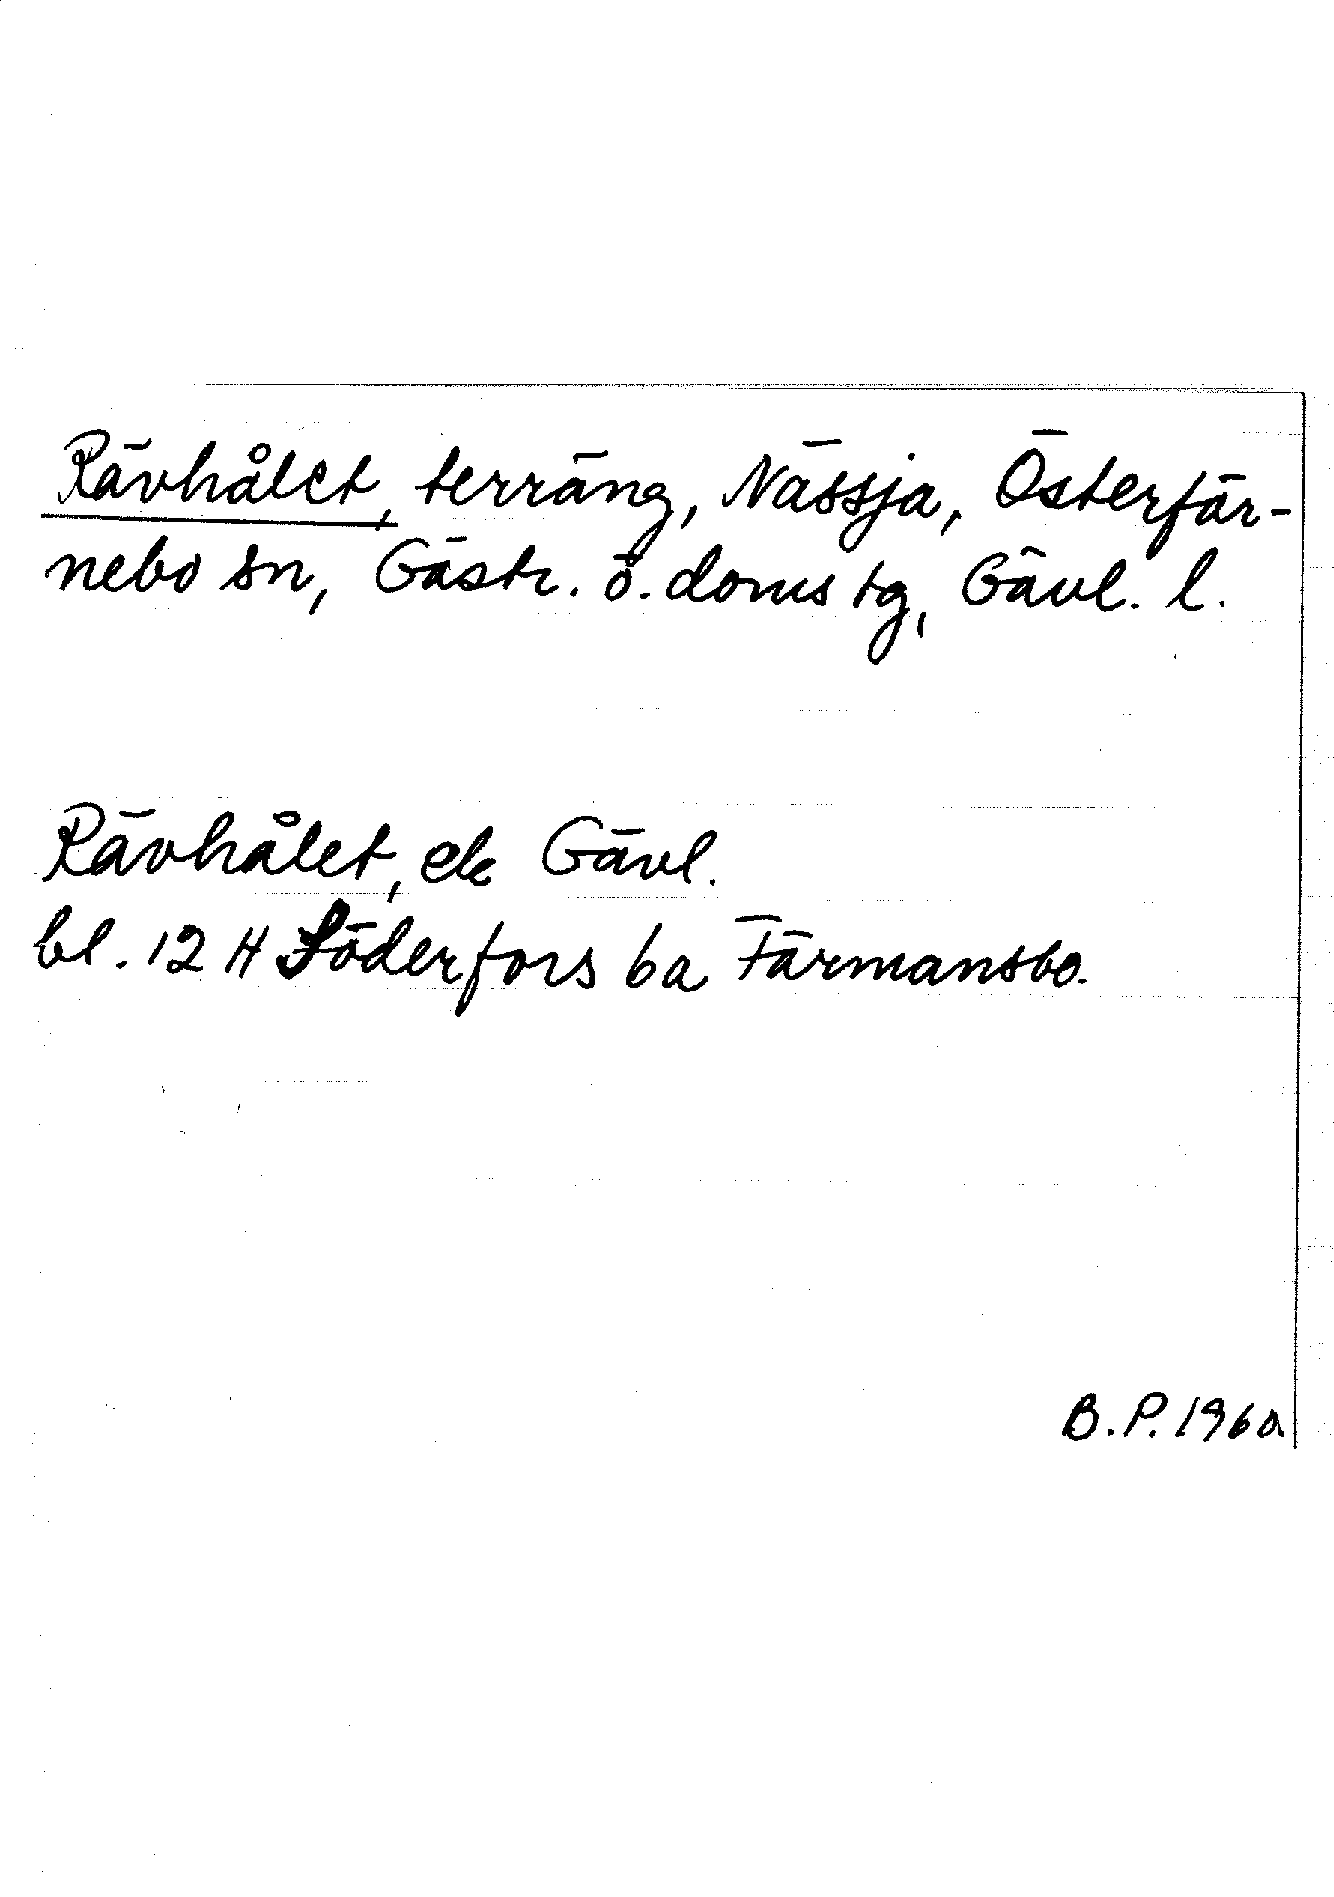 Rävhålet, terräng, Nässja, Österfär-
nebo sn, Gästr. ö. doms tg, Gävl. l.
Rävhålet, ek Gävl.
bl. 12 H Söderfors 6a Färmansbo.
B.P. 1960